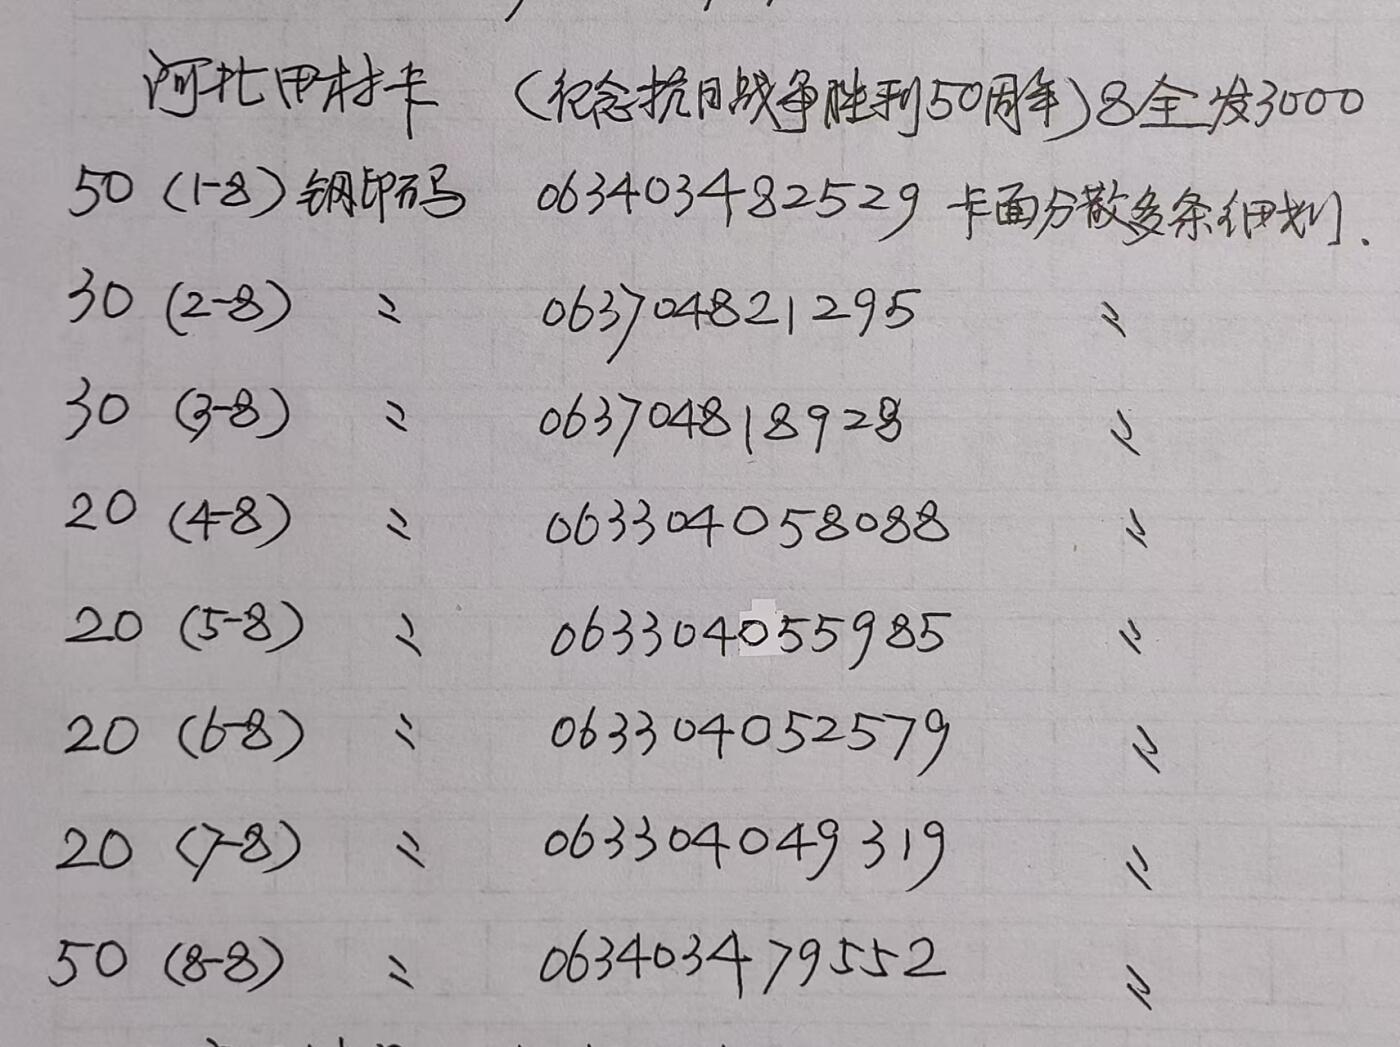 河北田村卡 (纪念抗日战争胜利50周年)8全发3000
50 (1-8) 钢印码 0634034482529 卡面分散多条细划.
30 (2-8) 〃 0637048212 95 〃
30 (3-8) 〃 063704818928 〃
20 (4-8) 〃 063304058088 〃
20 (5-8) 〃 063304055985 〃
20 (6-8) 〃 063304052579 〃
20 (7-8) 〃 063304049319 〃
50 (8-8) 〃 063403479552 〃